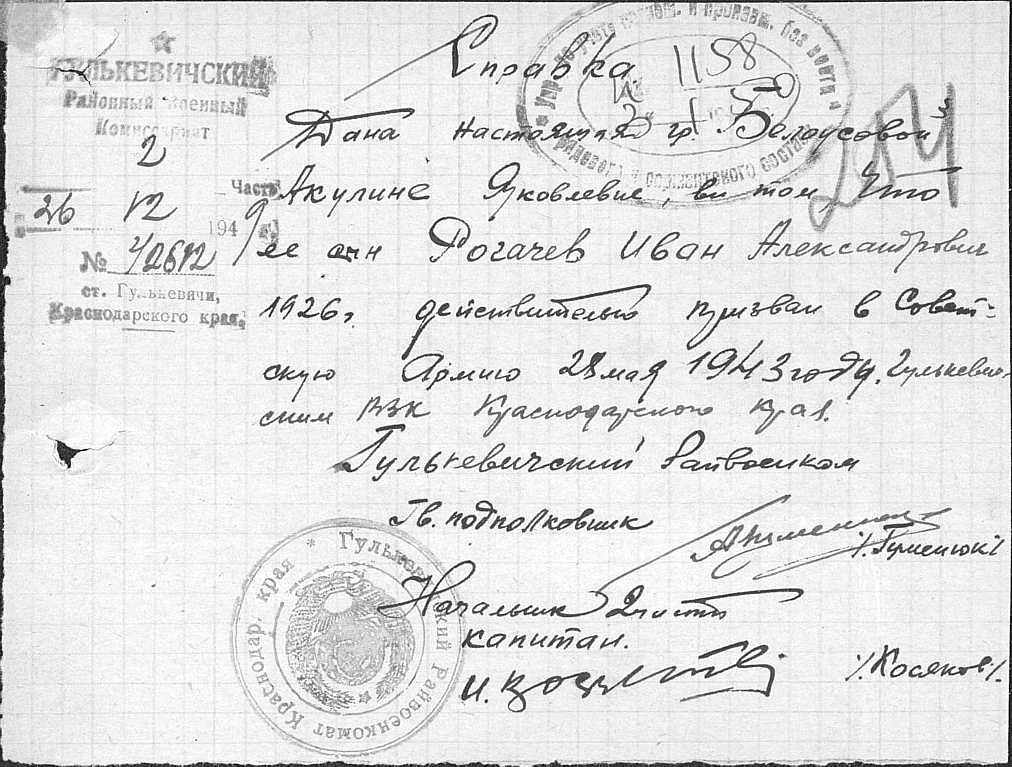 ГУЛЬКЕВИЧСКИЙ
Районный Военный
Комиссариат
2 Часть
26 12 1949 г.
№ 2/2612
ст. Гулькевичи,
Краснодарского края.
Упр. по учету погибш. и пропавш. без вести
рядового и сержантского состава
1158
3 1 50
214
Справка
Дана настоящая гр. Белоусовой
Акулине Яковлевне, в том, что
ее сын Рогачев Иван Александрович
1926г. действительно призван в Совет-
скую Армию 28 мая 1943 году. Гулькевич-
ским РВК Краснодарского края.
Гулькевичский Райвоенком
Гв. подполковник
/. Гуменюк/
Начальник 2 части
капитан.
/. Косяков/.
* Гулькевичский Райвоенкомат Краснодар. края